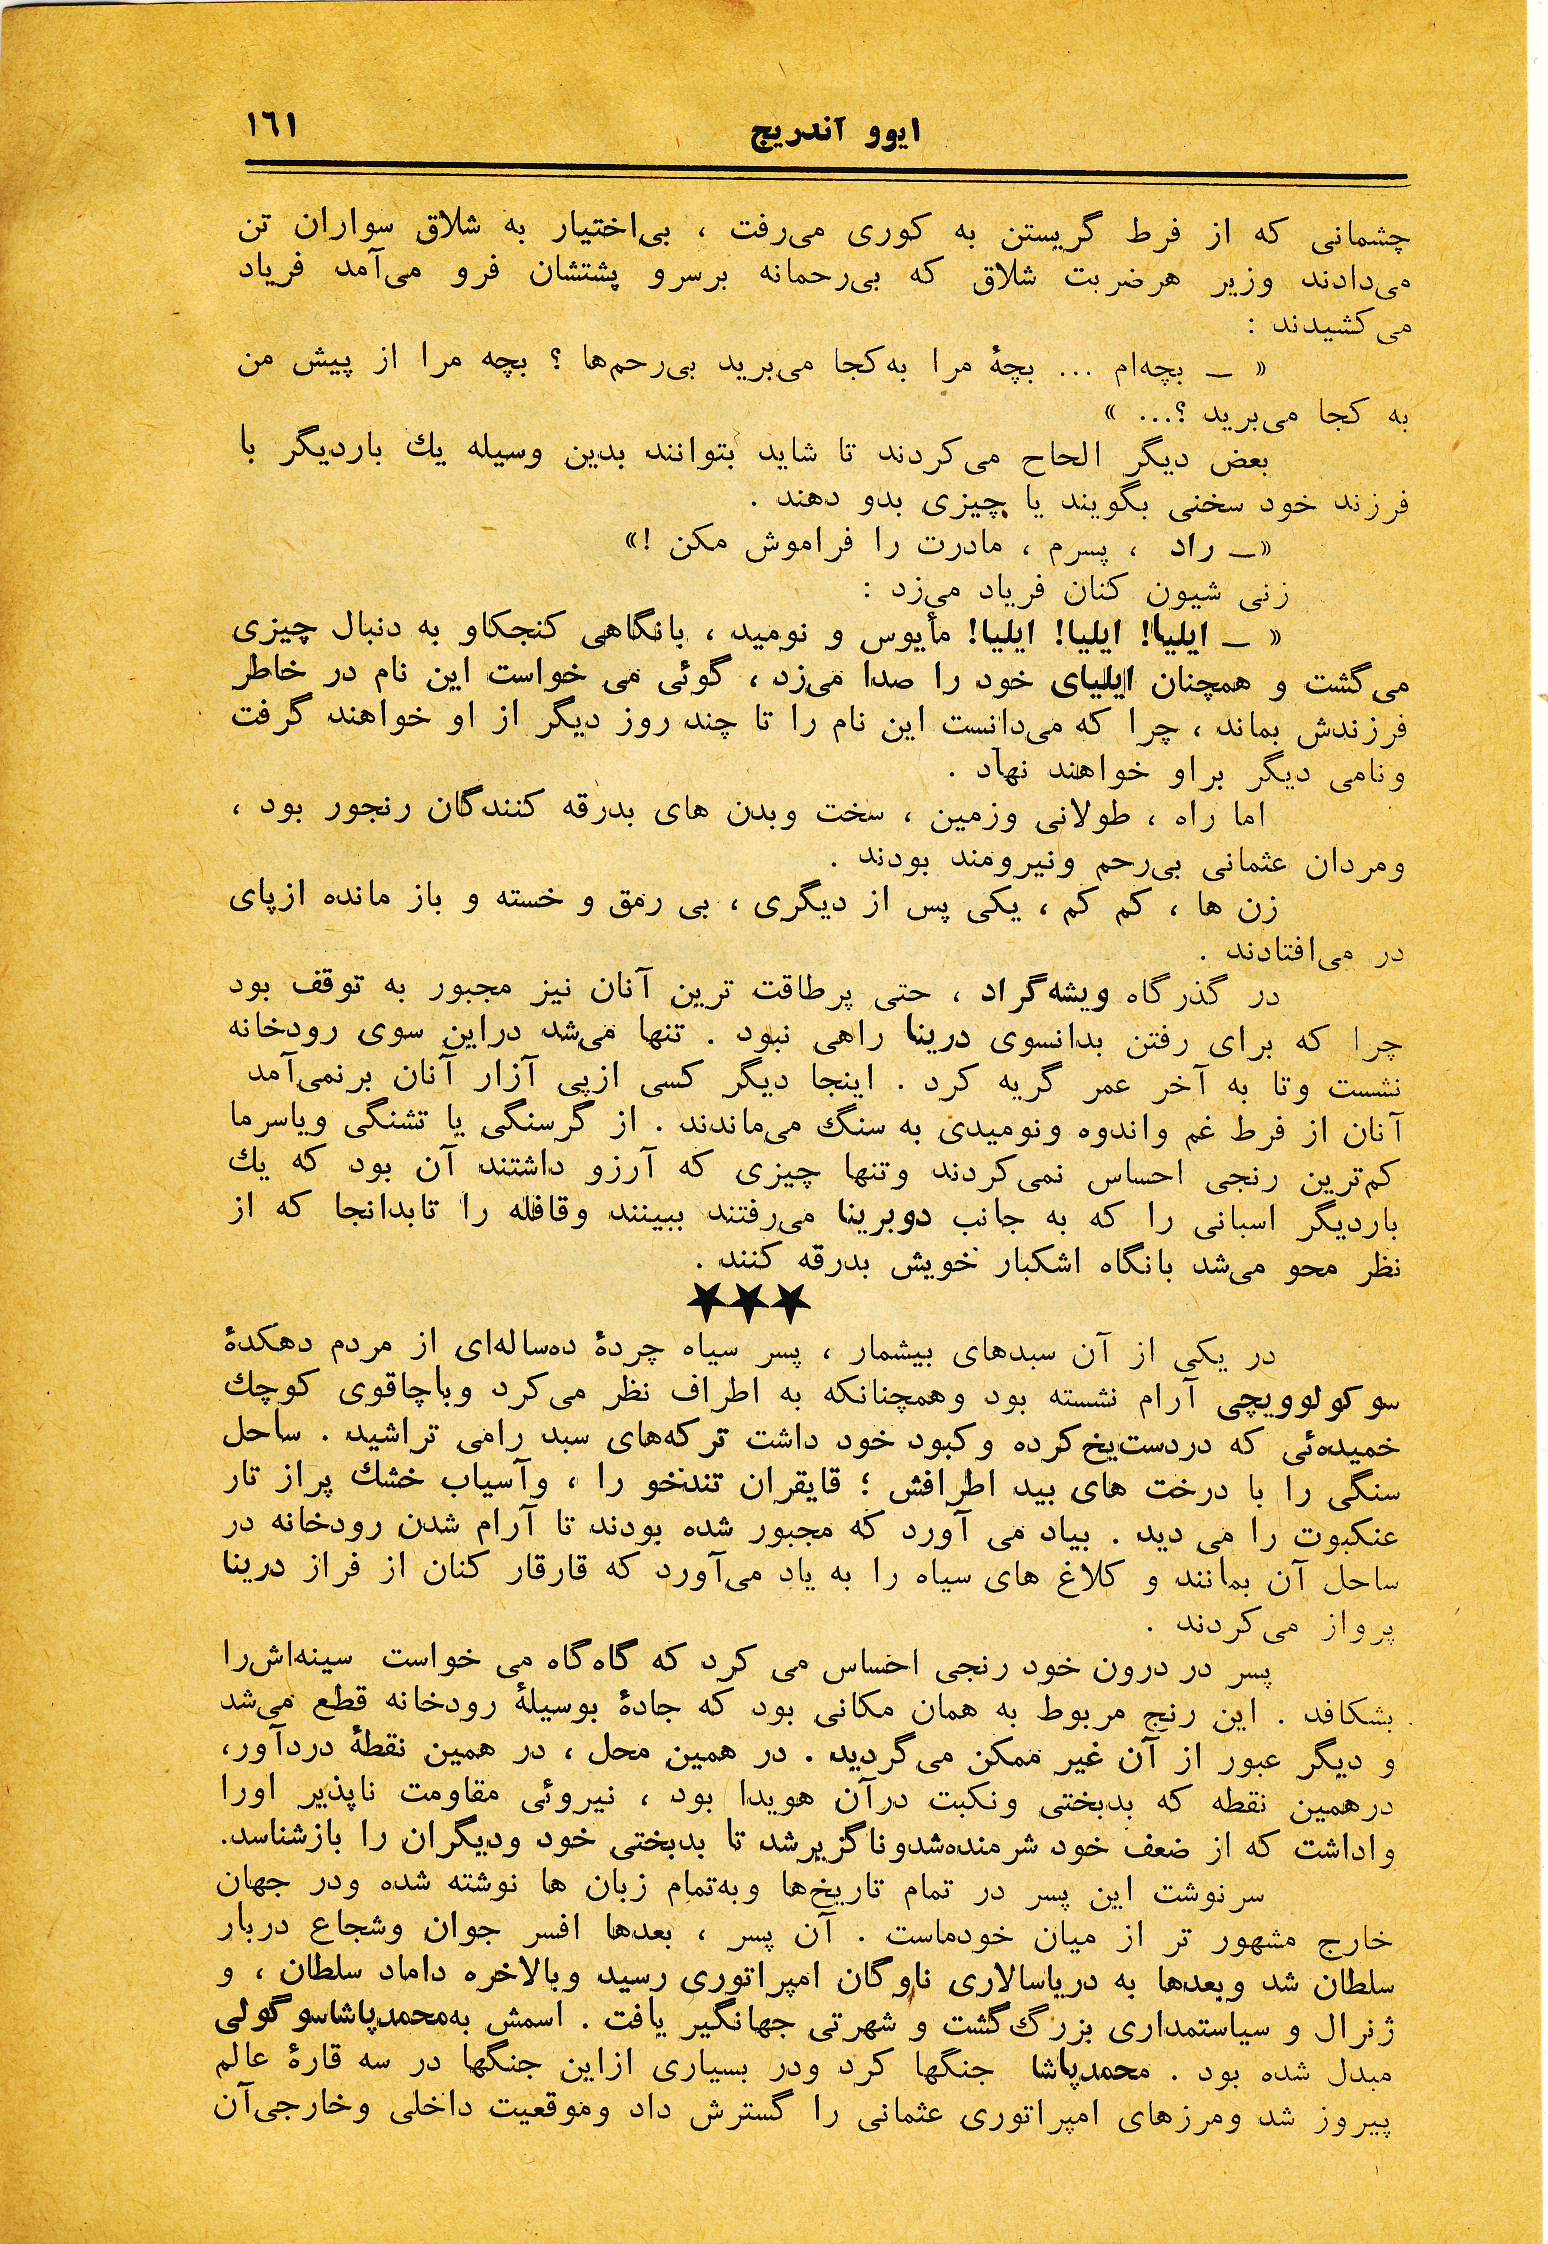 ایوو آندریج
۱۶۱
چشمانی که از فرط گریستن به کوری می‌رفت ، بی‌اختیار به شلاق سواران تن
می‌دادند وزیر هرضربت شلاق که بی‌رحمانه برسرو پشتشان فرو می‌آمد فریاد
می‌کشیدند :
« ـ بچه‌ام ... بچهٔ مرا به‌کجا می‌برید بی‌رحم‌ها ؟ بچه مرا از پیش من
به کجا می‌برید ؟... »
بعض دیگر الحاح می‌کردند تا شاید بتوانند بدین وسیله یك باردیگر با
فرزند خود سخنی بگویند یا چیزی بدو دهند .
«ـ راد ، پسرم ، مادرت را فراموش مکن !»
زنی شیون کنان فریاد می‌زد :
« ـ ایلیا! ایلیا! ایلیا! مأیوس و نومید ، بانگاهی کنجکاو به دنبال چیزی
می‌گشت و همچنان ایلیای خود را صدا می‌زد ، گوئی می خواست این نام در خاطر
فرزندش بماند ، چرا که می‌دانست این نام را تا چند روز دیگر از او خواهند گرفت
ونامی دیگر براو خواهند نهاد .
اما راه ، طولانی وزمین ، سخت وبدن های بدرقه کنندگان رنجور بود ،
ومردان عثمانی بی‌رحم ونیرومند بودند .
زن ها ، کم کم ، یکی پس از دیگری ، بی رمق و خسته و باز مانده ازپای
در می‌افتادند .
در گذرگاه ویشه‌گراد ، حتی پرطاقت ترین آنان نیز مجبور به توقف بود
چرا که برای رفتن بدانسوی درینا راهی نبود . تنها می‌شد دراین سوی رودخانه
نشست وتا به آخر عمر گریه کرد . اینجا دیگر کسی ازپی آزار آنان برنمی‌آمد
آنان از فرط غم واندوه ونومیدی به سنگ می‌ماندند . از گرسنگی یا تشنگی ویاسرما
کم‌ترین رنجی احساس نمی‌کردند وتنها چیزی که آرزو داشتند آن بود که یك
باردیگر اسبانی را که به جانب دوبرینا می‌رفتند ببینند وقافله را تابدانجا که از
نظر محو می‌شد بانگاه اشکبار خویش بدرقه کنند .
★★★
در یکی از آن سبدهای بیشمار ، پسر سیاه چردهٔ ده‌ساله‌ای از مردم دهکدهٔ
سوکولوویچی آرام نشسته بود وهمچنانکه به اطراف نظر می‌کرد وباچاقوی کوچك
خمیده‌ئی که دردست‌یخ‌کرده وکبود خود داشت ترکه‌های سبد رامی تراشید . ساحل
سنگی را با درخت های بید اطرافش ؛ قایقران تندخو را ، وآسیاب خشك پراز تار
عنکبوت را می دید . بیاد می آورد که مجبور شده بودند تا آرام شدن رودخانه در
ساحل آن بمانند و کلاغ های سیاه را به یاد می‌آورد که قارقار کنان از فراز درینا
پرواز می‌کردند .
پسر در درون خود رنجی احساس می کرد که گاه‌گاه می خواست سینه‌اش‌را
بشکافد . این رنج مربوط به همان مکانی بود که جادهٔ بوسیلهٔ رودخانه قطع می‌شد
و دیگر عبور از آن غیر ممکن می‌گردید . در همین محل ، در همین نقطهٔ دردآور،
درهمین نقطه که بدبختی ونکبت درآن هویدا بود ، نیروئی مقاومت ناپذیر اورا
واداشت که از ضعف خود شرمنده‌شدوناگزیرشد تا بدبختی خود ودیگران را بازشناسد.
سرنوشت این پسر در تمام تاریخ‌ها وبه‌تمام زبان ها نوشته شده ودر جهان
خارج مشهور تر از میان خودماست . آن پسر ، بعدها افسر جوان وشجاع دربار
سلطان شد وبعدها به دریاسالاری ناوگان امپراتوری رسید وبالاخره داماد سلطان ، و
ژنرال و سیاستمداری بزرگ‌گشت و شهرتی جهانگیر یافت . اسمش به‌محمدپاشاسوگولی
مبدل شده بود . محمدپاشا جنگها کرد ودر بسیاری ازاین جنگها در سه قارهٔ عالم
پیروز شد ومرزهای امپراتوری عثمانی را گسترش داد وموقعیت داخلی وخارجی‌آن